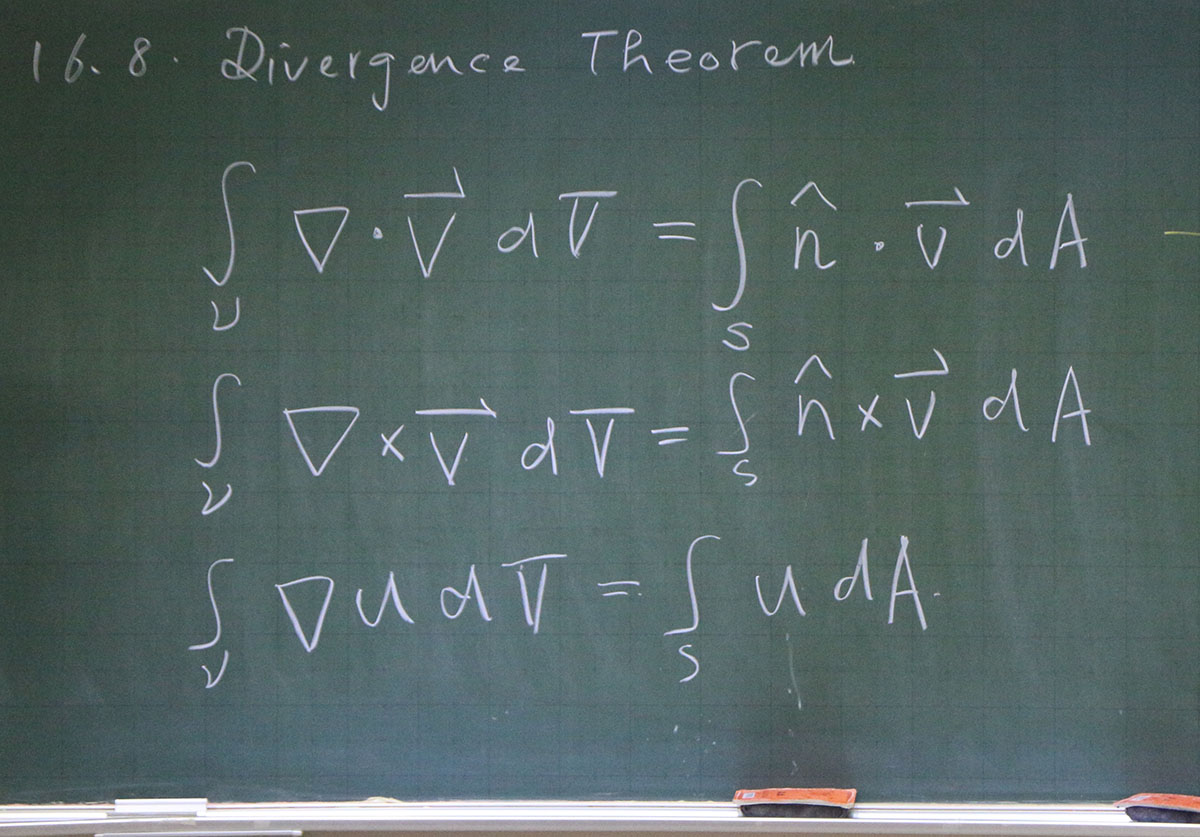 16.8. Divergence Theorem
∫_V ∇·V⃗ dV̅ = ∫_S n̂·v⃗ dA
∫_V ∇×V⃗ dV̅ = ∫_S n̂×v⃗ dA
∫_V ∇u dV̅ = ∫_S u dA.